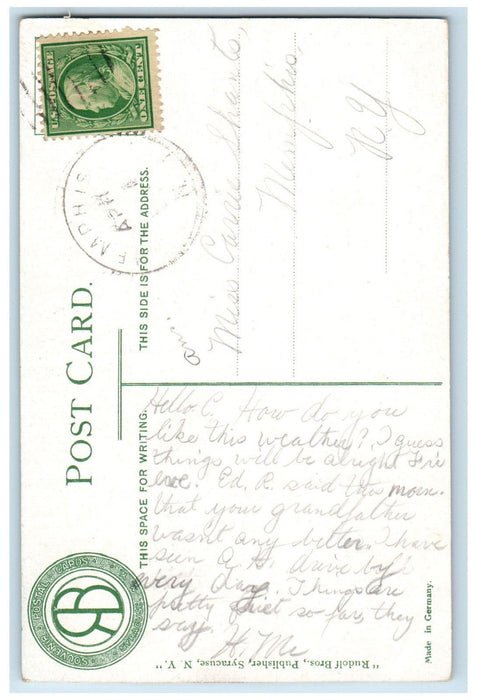 U.S. POSTAGE
ONE CENT
MEMPHIS
APR
N.Y.
POST CARD.
THIS SIDE IS FOR THE ADDRESS.
Miss Carrie Shants,
Memphis,
N Y
Ans.
THIS SPACE FOR WRITING.
Hello C. How do you
like this weather? I guess
things will be alright Fri
eve. Ed. R. said this morn.
that your grandfather
wasn't any better. I have
seen G. H. drive by
every day. Things are
pretty quiet so far, they
say. H. Mc
SOUVENIR POSTAL CARDS
RB
"Rudolf Bros., Publisher, Syracuse, N. Y."
Made in Germany.